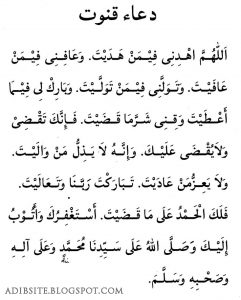 دعاء قنوت
اَللّٰهُمَّ اهْدِنِي فِيْمَنْ هَدَيْتَ. وَعَافِنِي فِيْمَنْ
عَافَيْتَ. وَتَوَلَّنِي فِيْمَنْ تَوَلَّيْتَ. وَبَارِكْ لِي فِيْمَا
أَعْطَيْتَ وَقِنِي شَرَّمَا قَضَيْتَ. فَإِنَّكَ تَقْضِى
وَلَايُقْضَى عَلَيْكَ. وَإِنَّهُ لَا يَذِلُّ مَنْ وَالَيْتَ.
وَلَا يَعِزُّمَنْ عَادَيْتَ. تَبَارَكْتَ رَبَّنَا وَتَعَالَيْتَ.
فَلَكَ الْحَمْدُ عَلَى مَا قَضَيْتَ. أَسْتَغْفِرُكَ وَأَتُوْبُ
إِلَيْكَ وَصَلَّى اللهُ عَلَى سَيِّدِنَا مُحَمَّدٍ وَعَلَى آلِهِ
وَصَحْبِهِ وَسَلَّمَ.
ADIBSITE.BLOGSPOT.COM